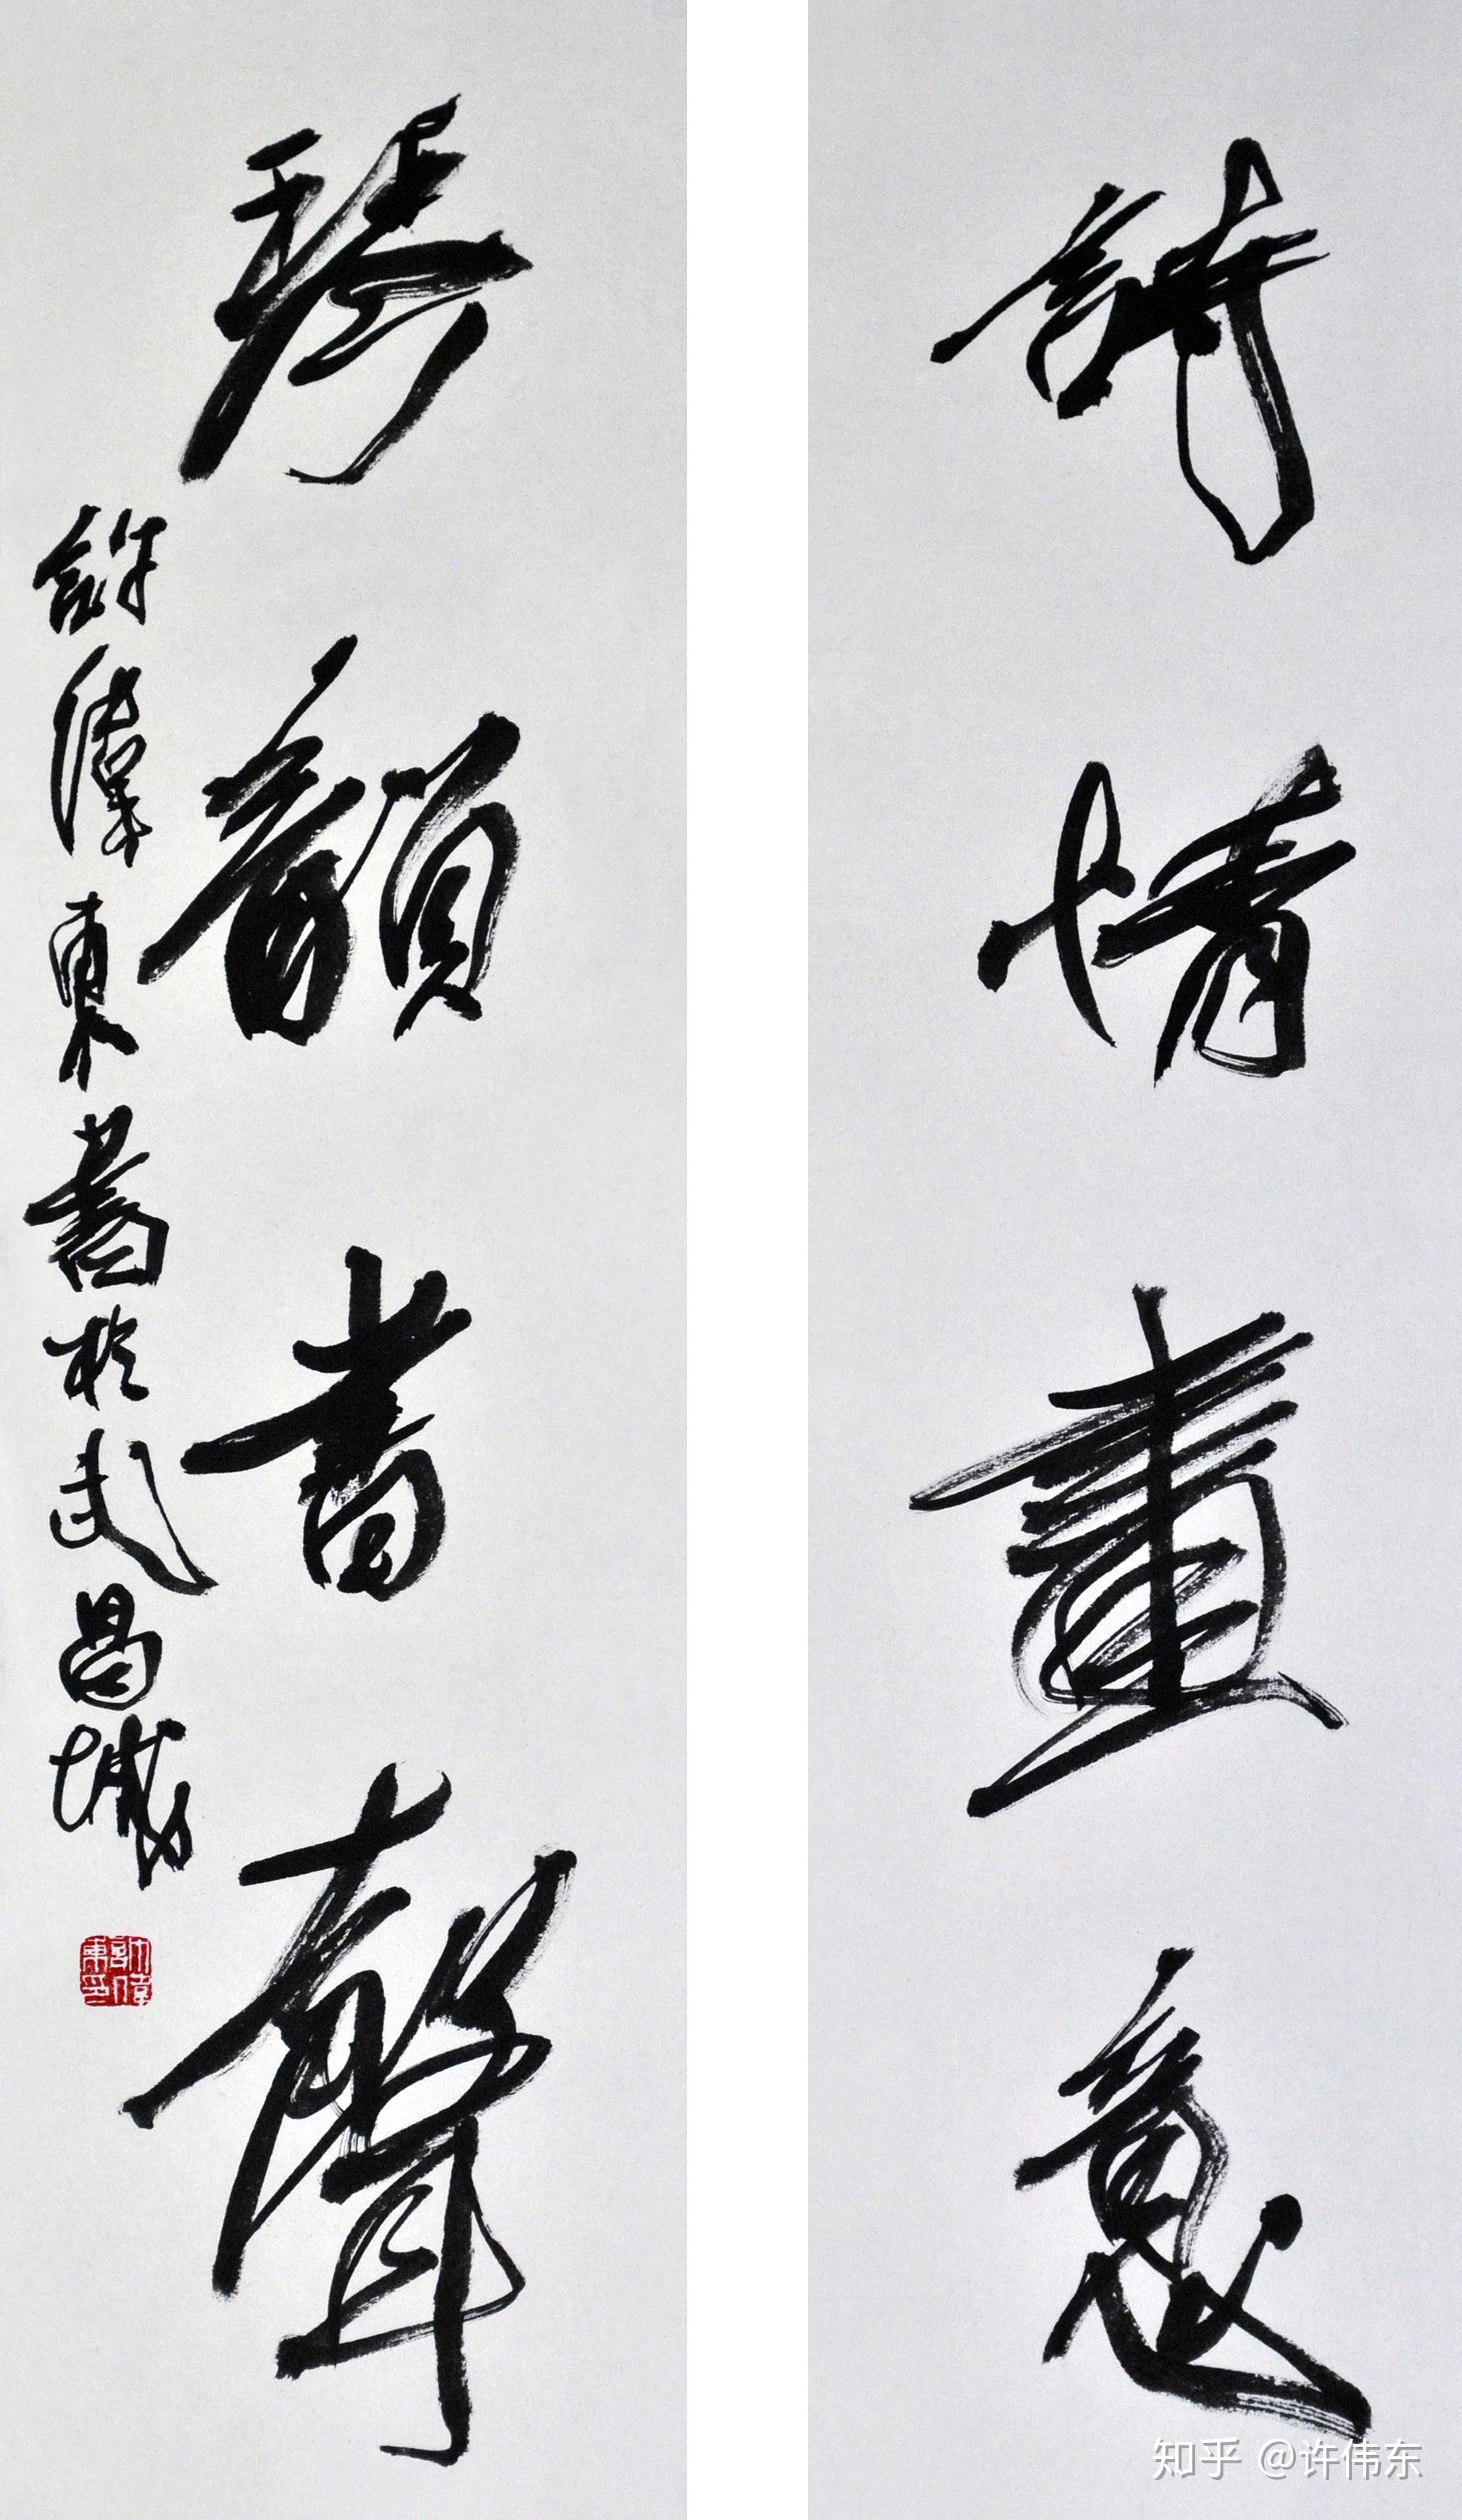 詩情畫意
琴韻書聲
許偉東書於武昌城
許偉東印
知乎 @许伟东